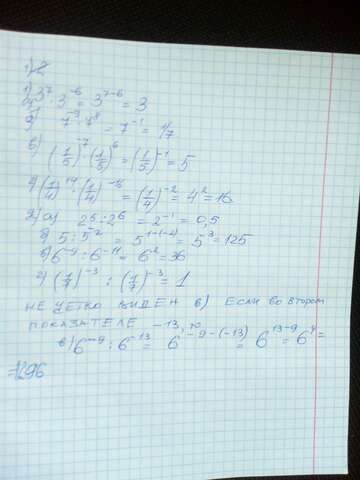 1)
1) 3⁷ · 3⁻⁶ = 3⁷⁻⁶ = 3
7⁻⁹ · 7⁸ = 7⁻¹ = 1/7
б) (1/5)⁻⁷ · (1/5)⁶ = (1/5)⁻¹ = 5
(1/4) · (1/4) = (1/4)⁻² = 4² = 16
2) а) 2⁵ : 2⁶ = 2⁻¹ = 0,5
5 : 5⁻² = 5¹⁻⁽⁻²⁾ = 5³ = 125
в) 6⁻⁹ : 6⁻¹¹ = 6² = 36
г) (1/7)⁻³ : (1/7)⁻³ = 1
НЕ ЧЕТКО ВИДЕН в) ЕСЛИ ВО ВТОРОМ
ПОКАЗАТЕЛЕ -13, ТО
в) 6⁻⁹ : 6⁻¹³ = 6⁻⁹⁻⁽⁻¹³⁾ = 6¹³⁻⁹ = 6⁴ =
=1296